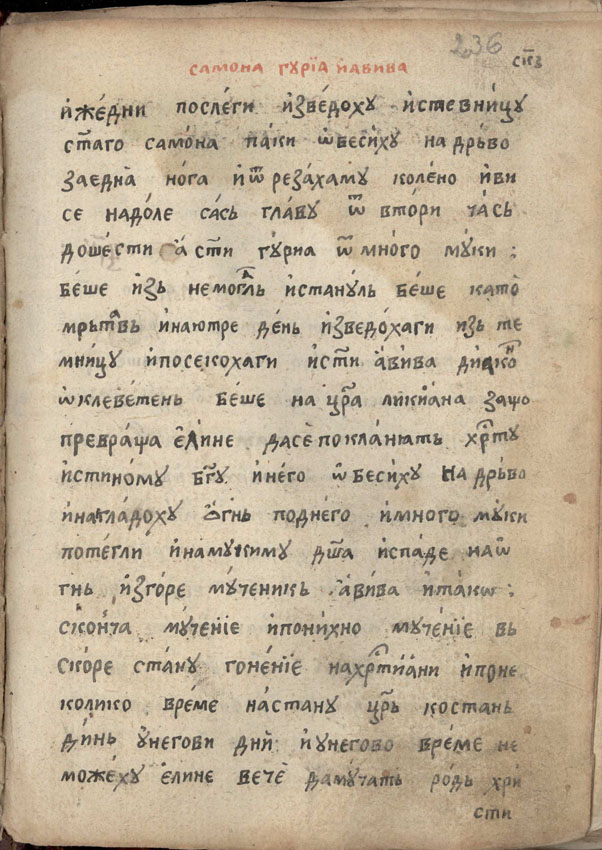 236 СКЗ
САМОНА ГУРЇА ЙАВИВА
и҆же́дни после́ги и҆зве́дохꙋ и҆стевни́цꙋ
ст҃аго само́на па́ки ѡ҆беси́хꙋ на дрь́во
заедна̀ но́га и҆ѿ реза́хамꙋ коле́но и҆ви
се надо́ле са́сь гла́вꙋ ѿ вто́ри ча́сь
доше́сти а҆ ст҃и гꙋ́риа ѿ мно́го мꙋ́ки :
бе́ше и҆зь немогль и҆станꙋ́ль бе́ше като̀
мрь́твь и҆наю́тре де́нь и҆зведо́хаги изь те
мни́цꙋ и҆посекохаги и҆ст҃и а҆ви́ва ди́ꙗкон
ѡ҆клеве́тень бе́ше на цр҃а ликиꙗ́на защо
превра́ща е҆́лине дасе покла́нꙗють хрⷭ҇тꙋ
и҆стино́мꙋ бг҃ꙋ и҆ него ѡ҆беси́хꙋ на дрь́во
и҆накла́дохꙋ ѻ҆́гнь подне́го и҆много мꙋ́ки
поте́гли и҆намꙋ́кимꙋ дш҃а и҆спаде наѡ҆
гнь и҆зго́ре мꙋ́ченикь а҆ви́ва и҆та́кѡ :
ско́нча мꙋче́нїе и҆пони́хно мꙋче́нїе вь
ско́ре ста́нꙋ гоне́нїе нахрⷭ҇тиꙗ́ни и҆поне
колико вре́ме на́станꙋ цр҃ь костань
ди́нь ꙋ҆́негови дни̑ и҆ꙋнегово вре́ме не
може́хꙋ е҆́лине вече̑ дамꙋ́чать ро́дь хри
сти